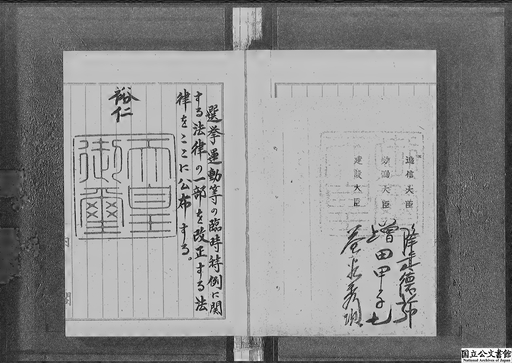 逓信大臣 降旗徳弥
労働大臣 増田甲子七
建設大臣 益谷秀次
選挙運動等の臨時特例に関
する法律の一部を改正する法
律をここに公布する。
裕仁
天皇
御璽
国立公文書館
National Archives of Japan